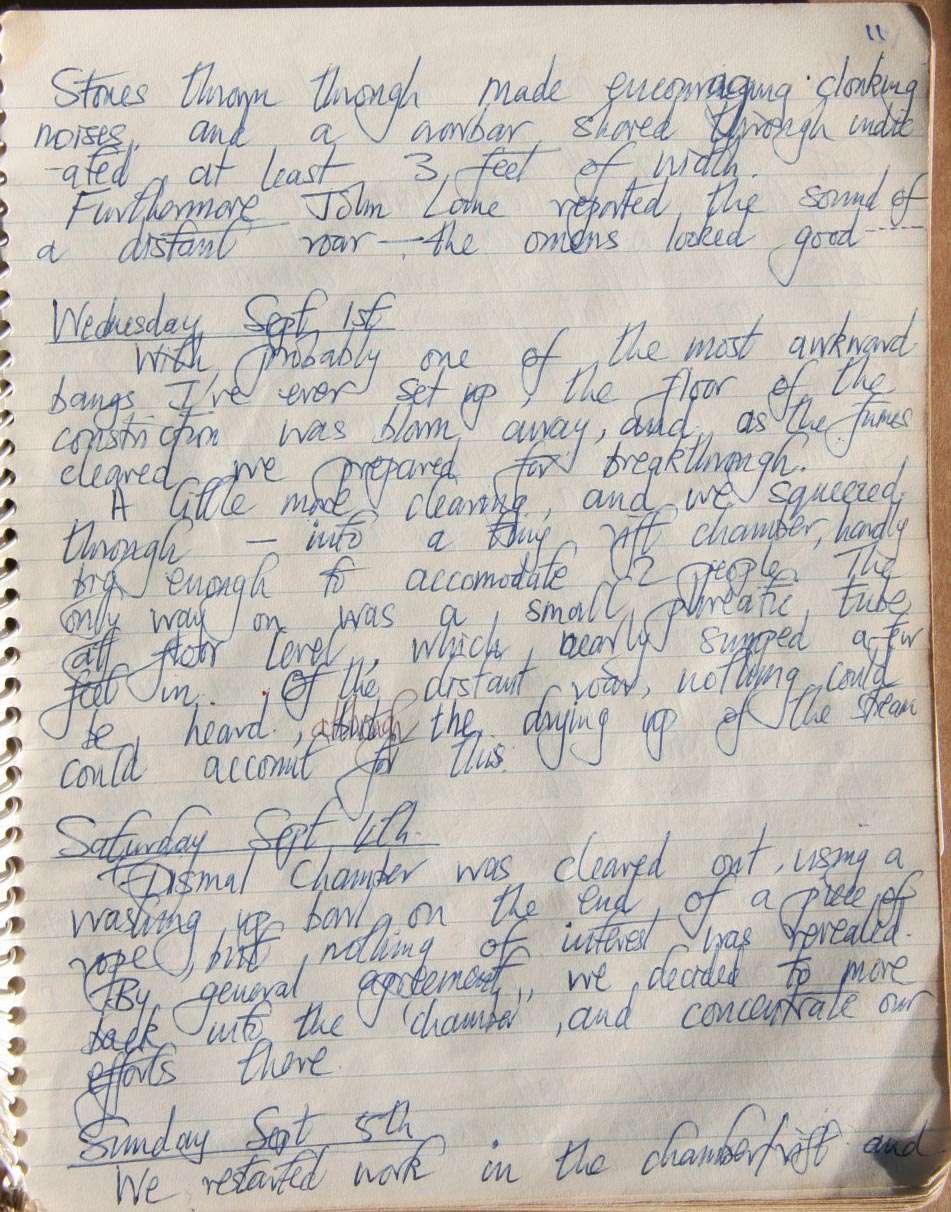 11
Stones thrown through made encouraging clonking
noises, and a crowbar shoved through indic
-ated at least 3 feet of width.
Furthermore John Lowe reported the sound of
a distant roar — the omens looked good-----
Wednesday Sept 1st
With probably one of the most awkward
bangs I've ever set up, the floor of the
constriction was blown away, and as the fumes
cleared we prepared for breakthrough.
A little more clearing, and we squeezed
through — into a tiny rift chamber, hardly
big enough to accomodate 2 people. The
only way on was a small phreatic tube
at floor level, which nearly sumped a few
feet in. Of the distant roar, nothing could
be heard, although the drying up of the stream
could account for this.
Saturday Sept 4th.
Dismal Chamber was cleared out, using a
washing up bowl on the end of a piece of
rope, but nothing of interest was revealed.
By general agreement, we decided to move
back into the 'chamber', and concentrate our
efforts there.
Sunday Sept 5th
We restarted work in the chamber/rift and